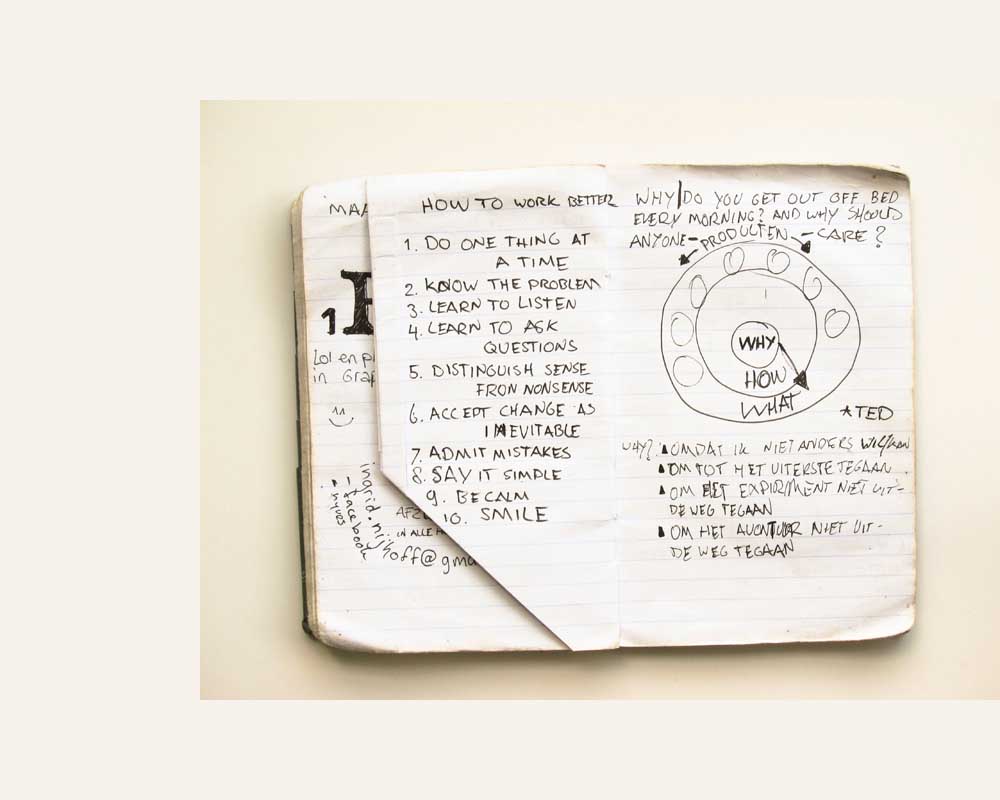 MA
1
Lol en p
in Grap
ingrid.nijhoff@gma
- facebook
IN ALLE
HOW TO WORK BETTER
1. DO ONE THING AT
A TIME
2. KNOW THE PROBLEM
3. LEARN TO LISTEN
4. LEARN TO ASK
QUESTIONS
5. DISTINGUISH SENSE
FROM NONSENSE
6. ACCEPT CHANGE AS
INEVITABLE
7. ADMIT MISTAKES
8. SAY IT SIMPLE
9. BE CALM
10. SMILE
WHY DO YOU GET OUT OFF BED
EVERY MORNING? AND WHY SHOULD
ANYONE - PRODUCTEN - CARE?
WHY
HOW
WHAT
*TED
WHY? OMDAT IK NIET ANDERS WIL/KAN
OM TOT HET UITERSTE TE GAAN
OM HET EXPIRIMENT NIET UIT-
DE WEG TE GAAN
OM HET AVONTUUR NIET UIT-
DE WEG TE GAAN